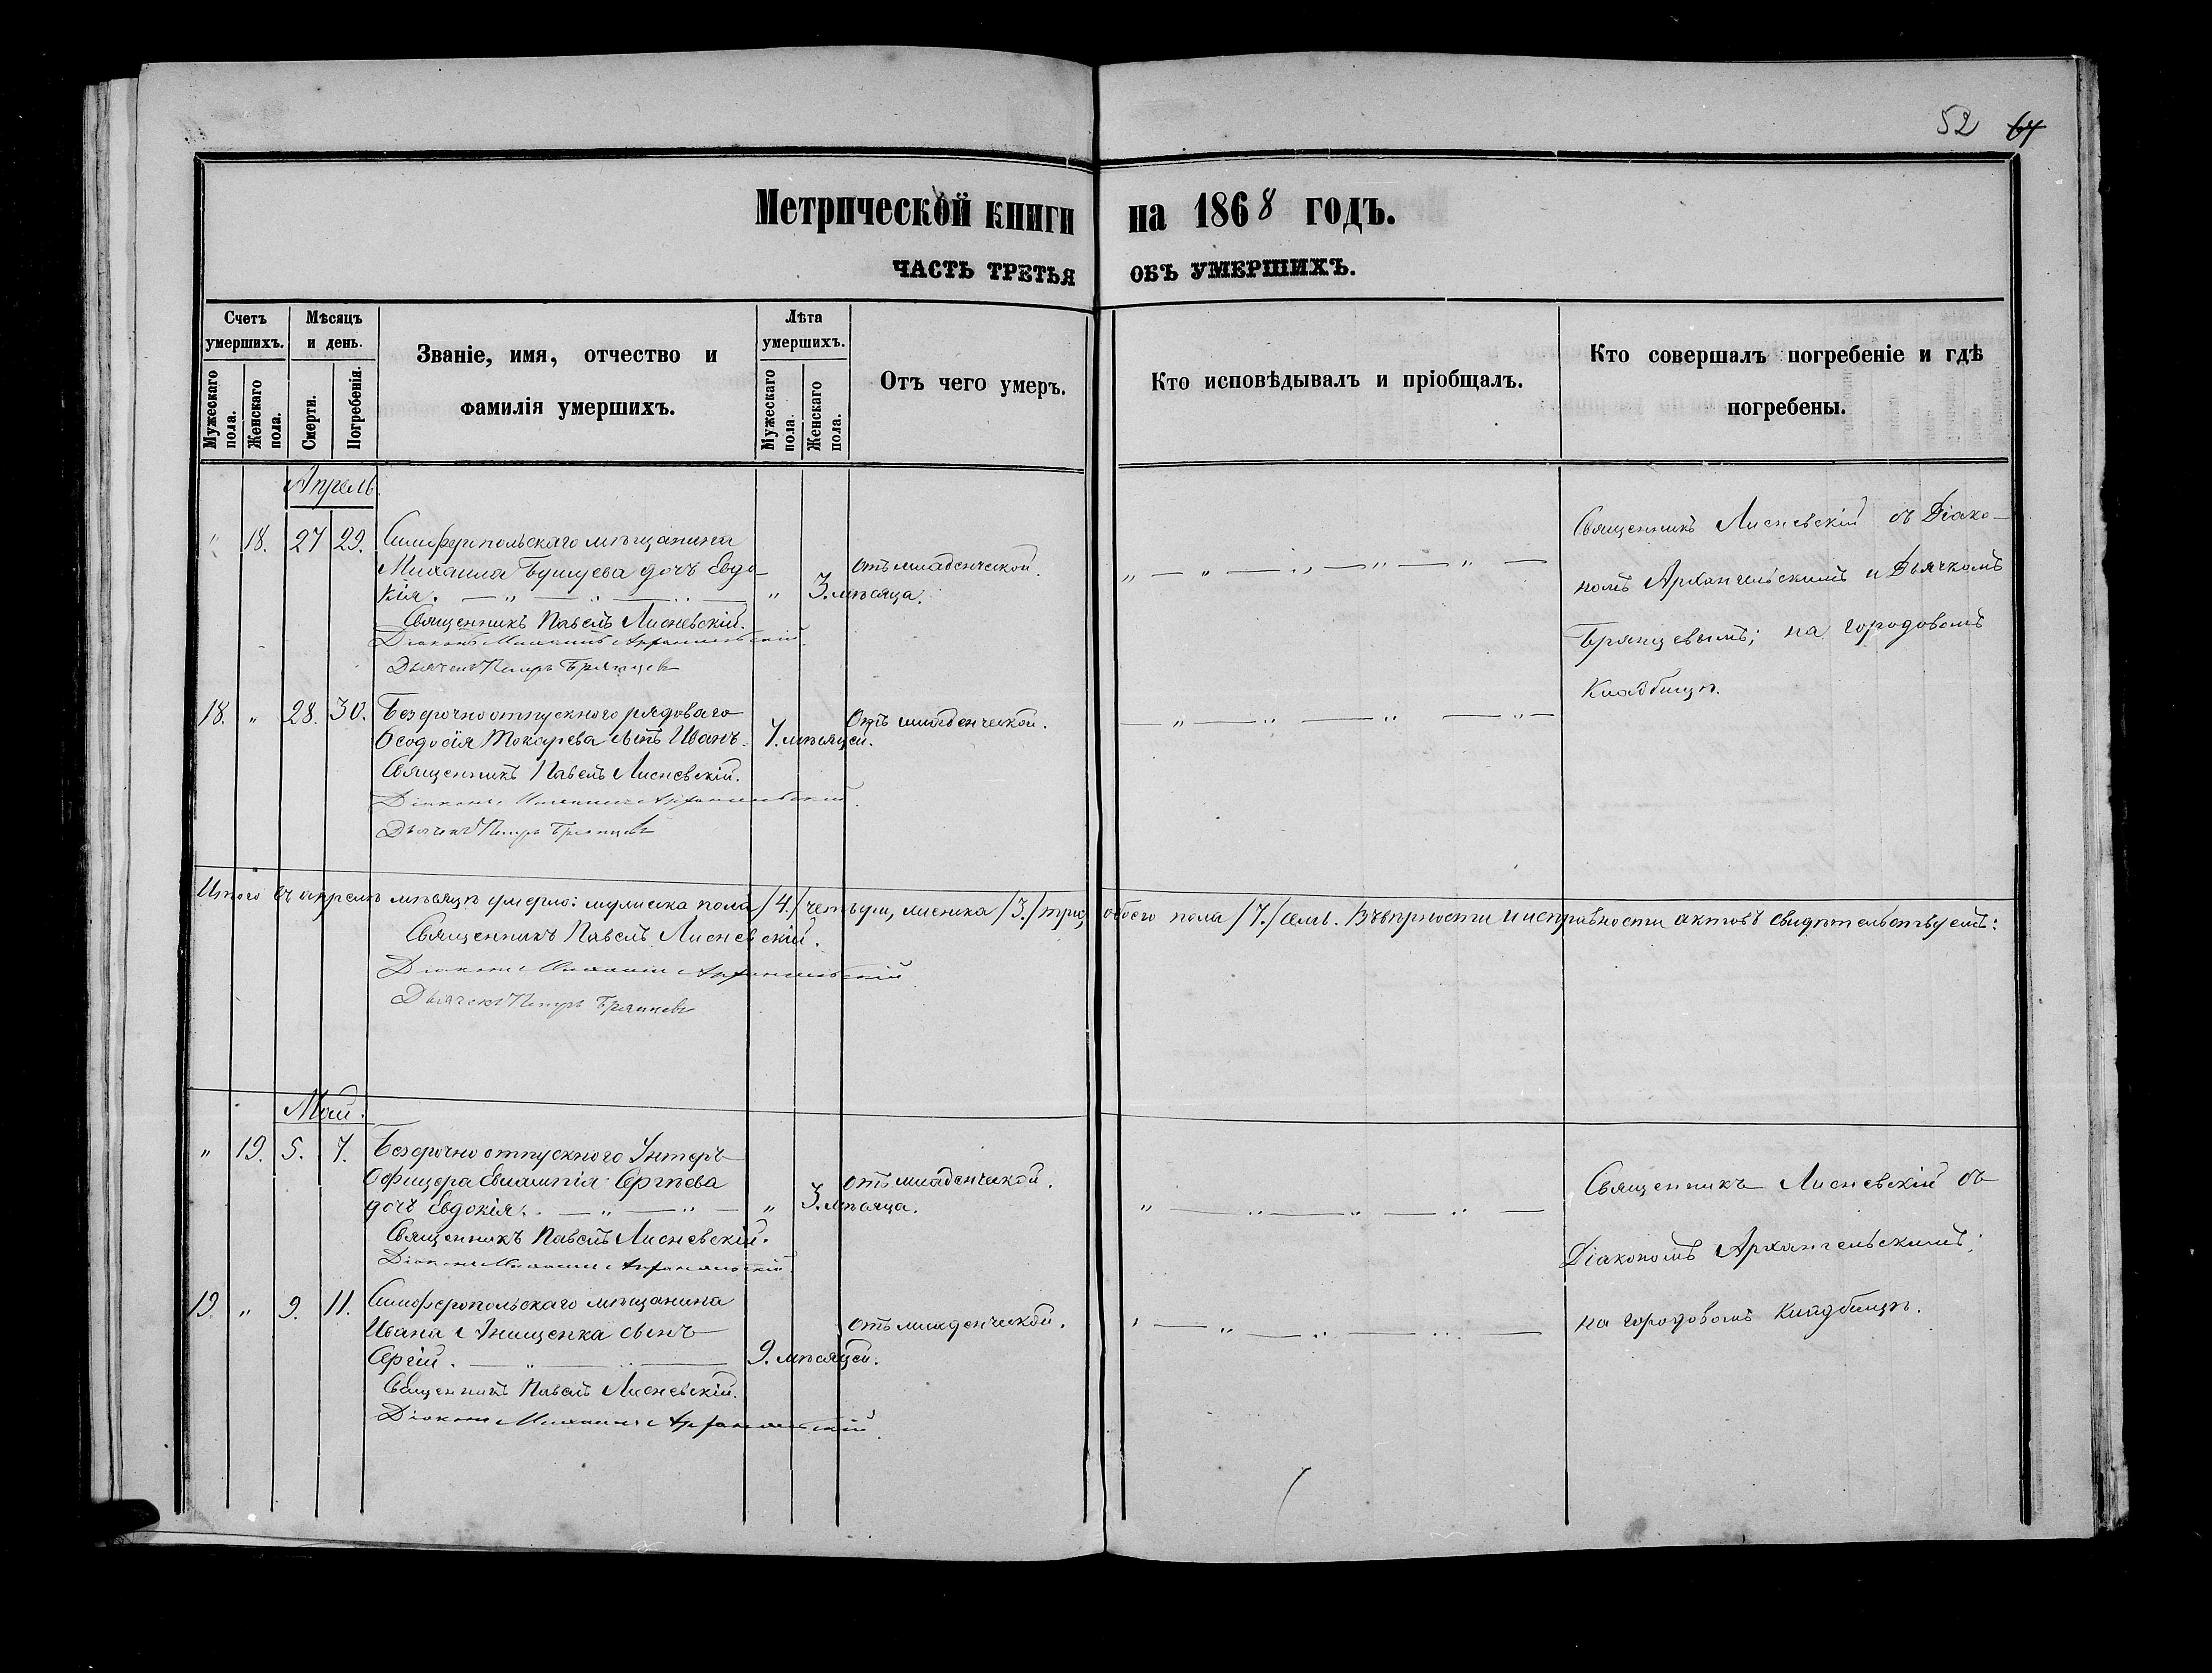 52 64
Метрической книги на 1868 годъ.
ЧАСТЬ ТРЕТЬЯ ОБЪ УМЕРШИХЪ.
Счетъ умершихъ.
Мужескаго пола.
Женскаго пола.
Мѣсяцъ и день.
Смерти.
Погребенія.
Званіе, имя, отчество и
фамилія умершихъ.
Лѣта умершихъ.
Мужескаго пола.
Женскаго пола.
Отъ чего умеръ.
Кто исповѣдывалъ и пріобщалъ.
Кто совершалъ погребеніе и гдѣ
погребены.
Апрель.
" 18. 27 29. Симферопольскаго мѣщанина
Михаила Бушуева дочь Евдо-
кія. — " — " — " — " 3. мѣсяца. отъ младенческой. " — " — " — " — " —
Священникъ Павелъ Лисневскій.
Діаконъ Михаилъ Архангельскій.
Дьячекъ Петръ Брянцевъ
Священникъ Лисневскій съ Діако-
номъ Архангельскимъ и Дьячкомъ
Брянцевымъ; на городовомъ
Кладбищѣ.
18. " 28. 30. Безсрочноотпускного рядоваго
Ѳеодосія Токарева сынъ Иванъ. 7. мѣсяцей. Отъ младенческой. — " — " — " — " —
Священникъ Павелъ Лисневскій.
Діаконъ Михаилъ Архангельскій.
Дьячекъ Петръ Брянцевъ
Итого въ апрелѣ мѣсяцѣ умерло: мужеска пола /4./ четыри, женска /3./ три, обоего пола /7./ семь. Въ вѣрности и исправности актовъ свидѣтельствуемъ:
Священникъ Павелъ Лисневскій.
Діаконъ Михаилъ Архангельскій.
Дьячекъ Петръ Брянцевъ
Май.
" 19. 5. 7. Безсрочноотпускного Унтеръ-
Офицера Евлампія Сергѣева
дочь Евдокія. — " — " — " 3. мѣсяца. отъ младенческой. " — " — " — " —
Священникъ Павелъ Лисневскій.
Діаконъ Михаилъ Архангельскій.
Священникъ Лисневскій съ
Діакономъ Архангельскимъ;
на городовомъ кладбищѣ.
19. " 9. 11. Симферопольскаго мѣщанина
Ивана Онищенка сынъ
Сергій. — " — " — 9. мѣсяцей. отъ младенческой. " — " — " — " —
Священникъ Павелъ Лисневскій.
Діаконъ Михаилъ Архангельскій.